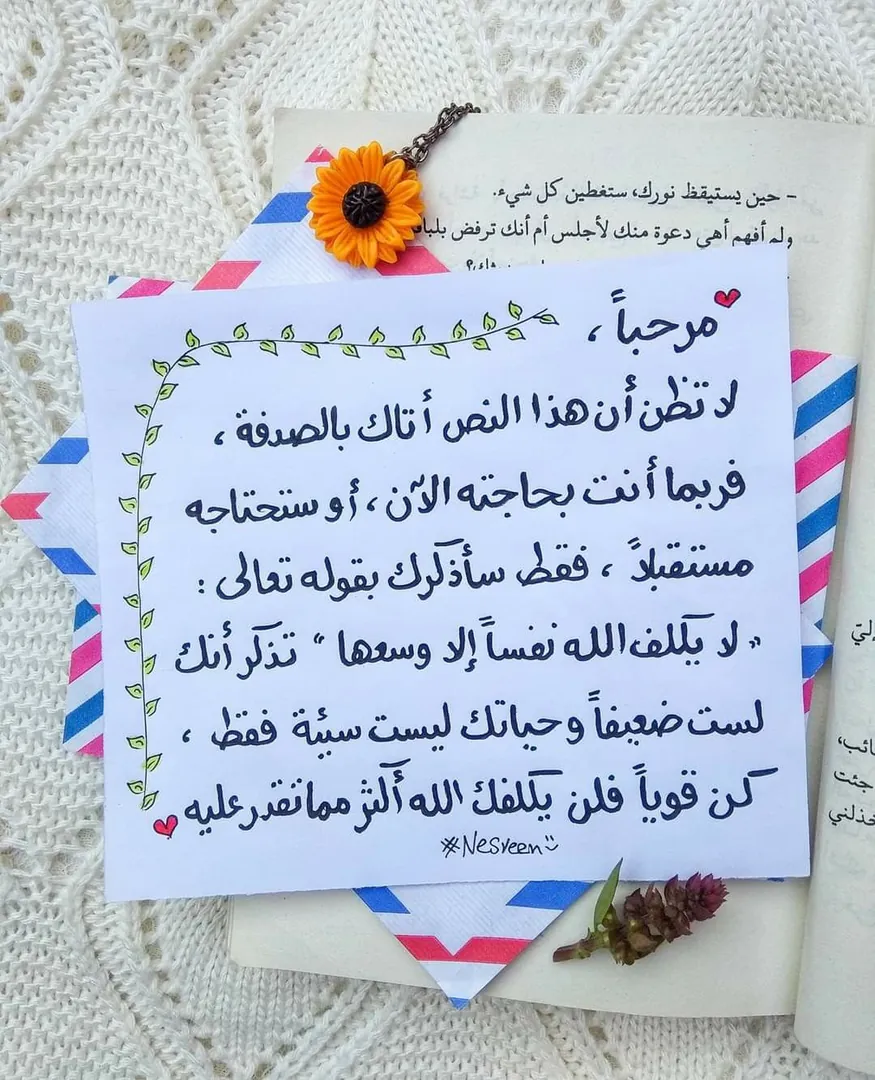 – حين يستيقظ نورك، ستغطين كل شيء.
ولم أفهم أهي دعوة منك لأجلس أم أنك ترفض
مرحباً ،
لا تظن أن هذا النص أتاك بالصدفة ،
فربما أنت بحاجته الآن ، أو ستحتاجه
مستقبلاً ، فقط سأذكرك بقوله تعالى :
" لا يكلف الله نفساً إلا وسعها " تذكر أنك
لست ضعيفاً وحياتك ليست سيئة فقط ،
كن قوياً فلن يكلفك الله أكثر مما تقدر عليه
#Nesreen
جئت